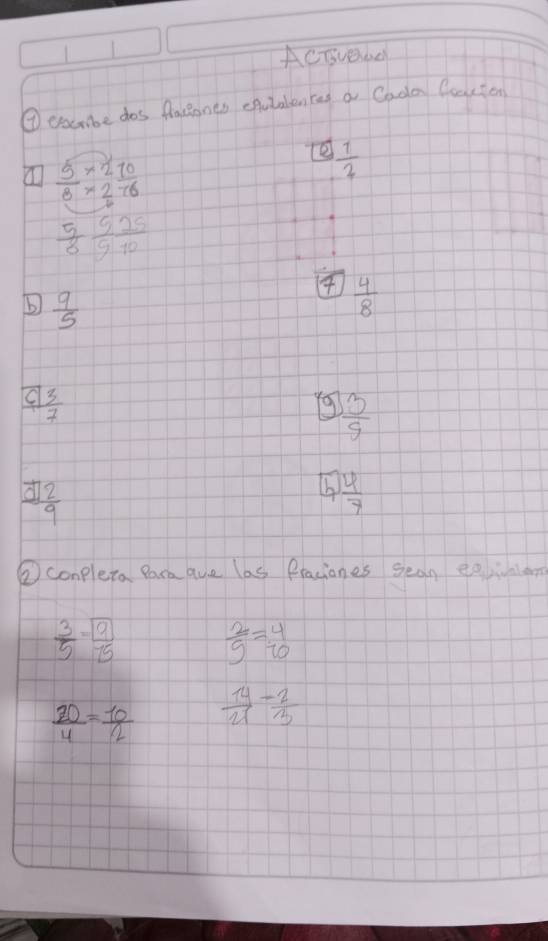 ACTIVidad
① escribe dos flaciones equibalentes a Cada fracción
a 5/8 × 2/2 10/16
5/8 5/5 25/10
e 1/2
b 9/5
f 4/8
c 3/7
g 3/9
d 2/9
h 4/7
② conpleta Para que las fraciones sean
3/5 = 9/15
2/5 = 4/10
20/4 = 10/2
14/21 = 2/3